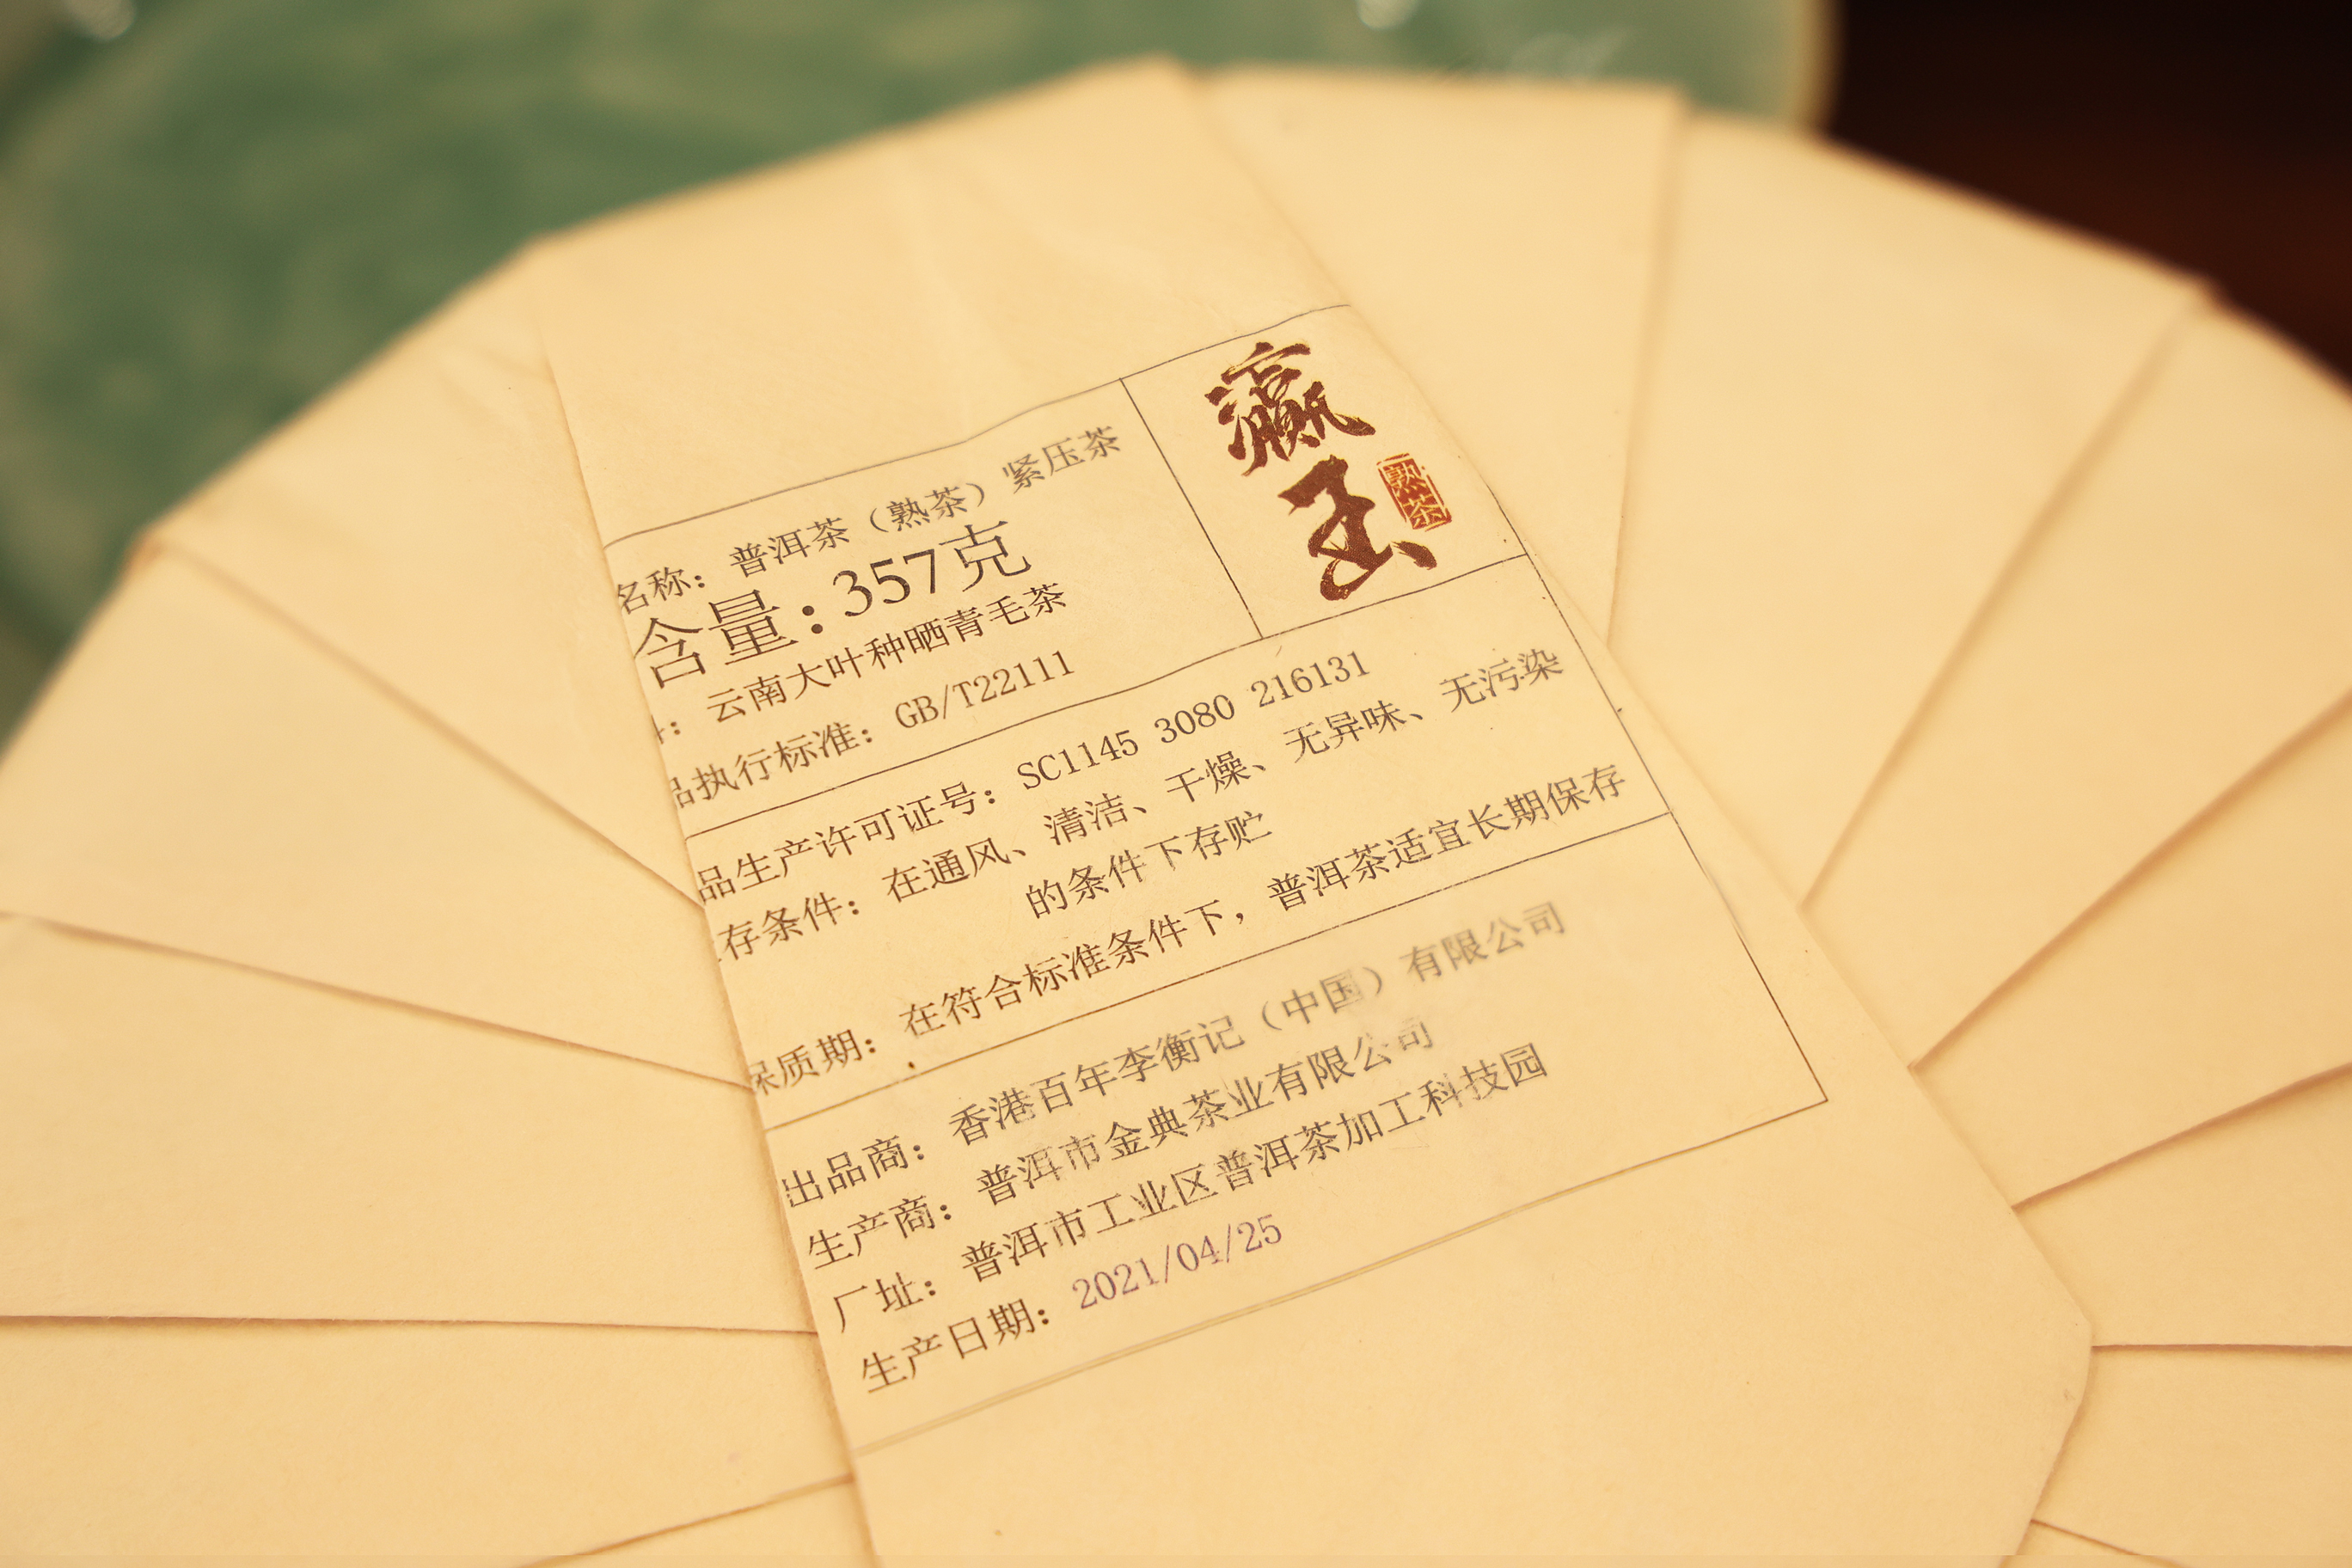 名称：普洱茶（熟茶）紧压茶
含量：357克
：云南大叶种晒青毛茶
品执行标准：GB/T22111
瀛玉
熟茶
品生产许可证号：SC1145 3080 216131
存条件：在通风、清洁、干燥、无异味、无污染
的条件下存贮
保质期：在符合标准条件下，普洱茶适宜长期保存
出品商：香港百年李衡记（中国）有限公司
生产商：普洱市金典茶业有限公司
厂址：普洱市工业区普洱茶加工科技园
生产日期：2021/04/25